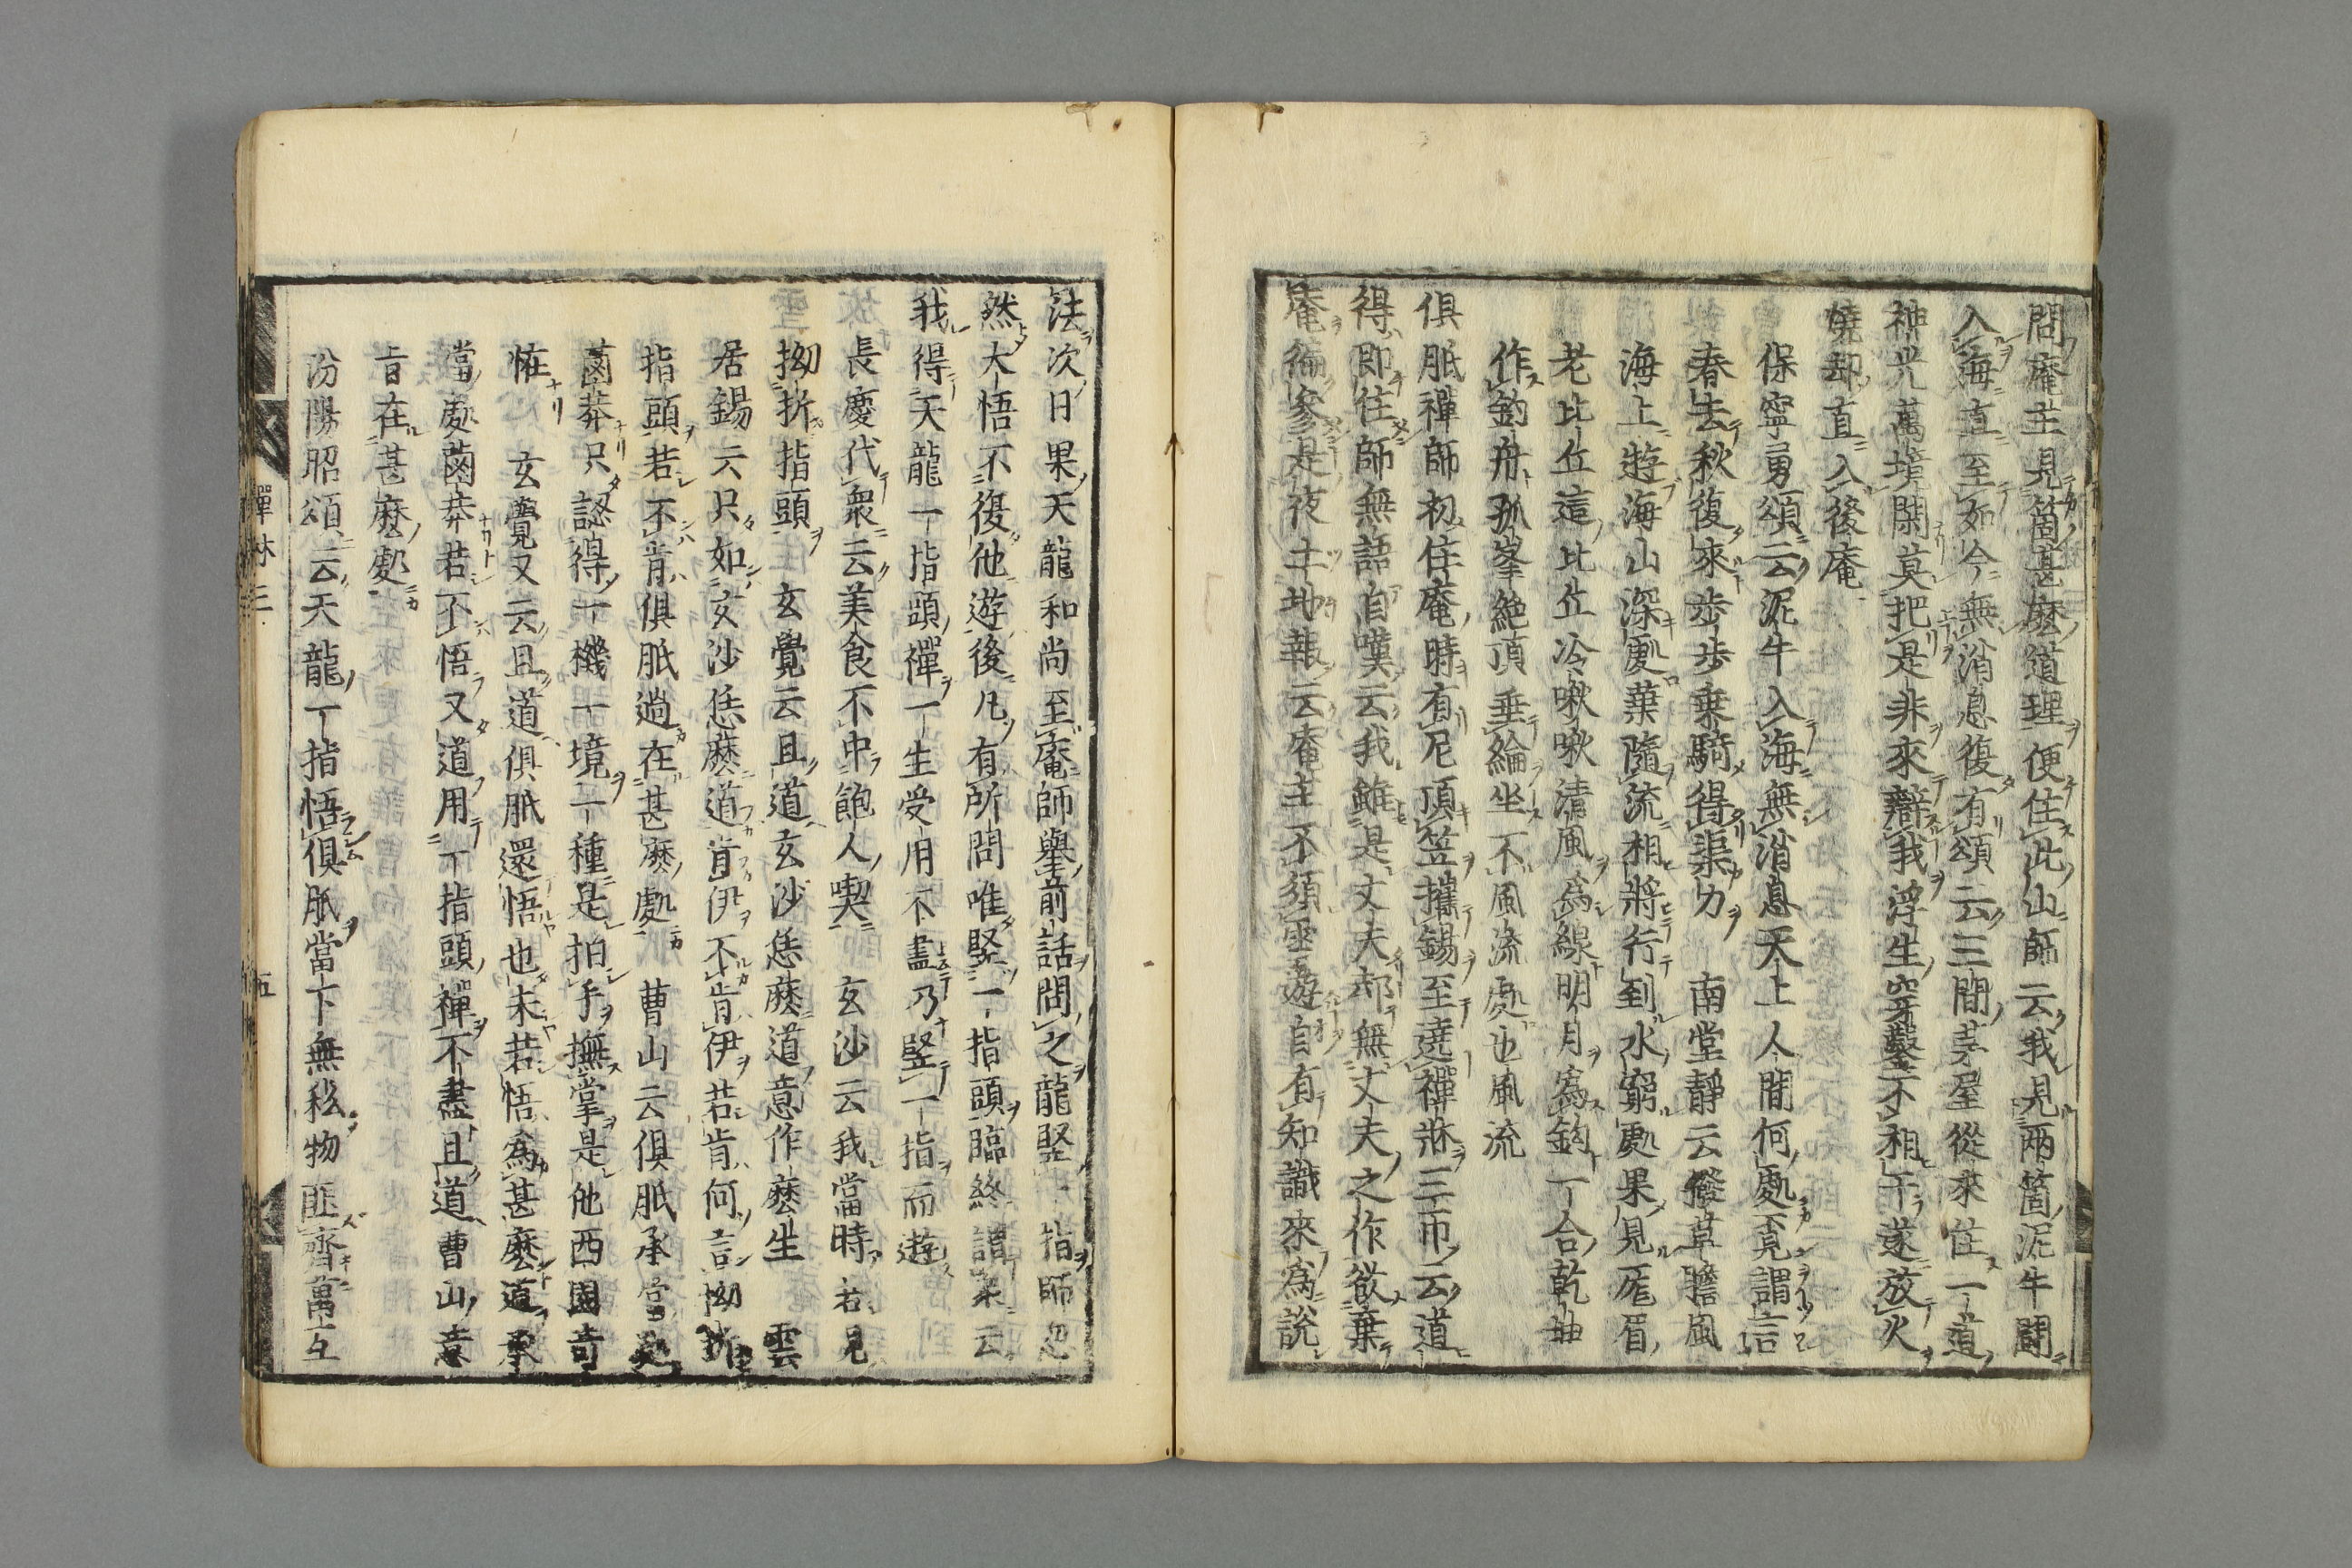 問庵主見箇甚麽道理便住此山師云我見兩箇泥牛鬪
入海直至如今無消息復有頌云三間茅屋從來住一道
神光萬境閑莫把是非來辯我浮生穿鑿不相干遂放火
燒却直入後庵
保寧勇頌云泥牛入海無消息天上人間何處覓謂言
春去秋復來步步乗騎得渠力　南堂靜云撥草瞻風
海上遊海山深處葉隨流相將行到水窮處果見厖眉
老比丘這比丘冷啾啾清風爲線明月爲鈎一合乾坤
作釣舟孤峯絶頂垂綸坐不風流處也風流
俱胝禪師初住庵時有尼頂笠攜錫至遶禪牀三帀云道
得即住師無語自嘆云我雖是丈夫却無丈夫之作欲棄
庵徧參是夜土地報云庵主不須遊自有知識來爲說
法次日果天龍和尚至庵師舉前話問之龍竪一指師忽
然大悟不復他遊後凡有所問唯竪一指頭臨終謂衆云
我得天龍一指頭禪一生受用不盡乃竪一指而逝
長慶代衆云美食不中飽人喫　玄沙云我當時若見
拗折指頭　玄覺云且道玄沙恁麽道意作麽生　雲
居錫云只如玄沙恁麽道肯伊不肯伊若肯何言拗折
指頭若不肯俱胝過在甚麽處　曹山云俱胝承當處
鹵莽只認得一機一境一種是拍手撫掌是他西園奇
恠　玄覺又云且道俱胝還悟也未若悟爲甚麽道承
當處鹵莽若不悟又道用一指頭禪不盡且道曹山意
旨在甚麽處
汾陽昭頌云天龍一指悟俱胝當下無私物匪齊萬互
禪林三
五